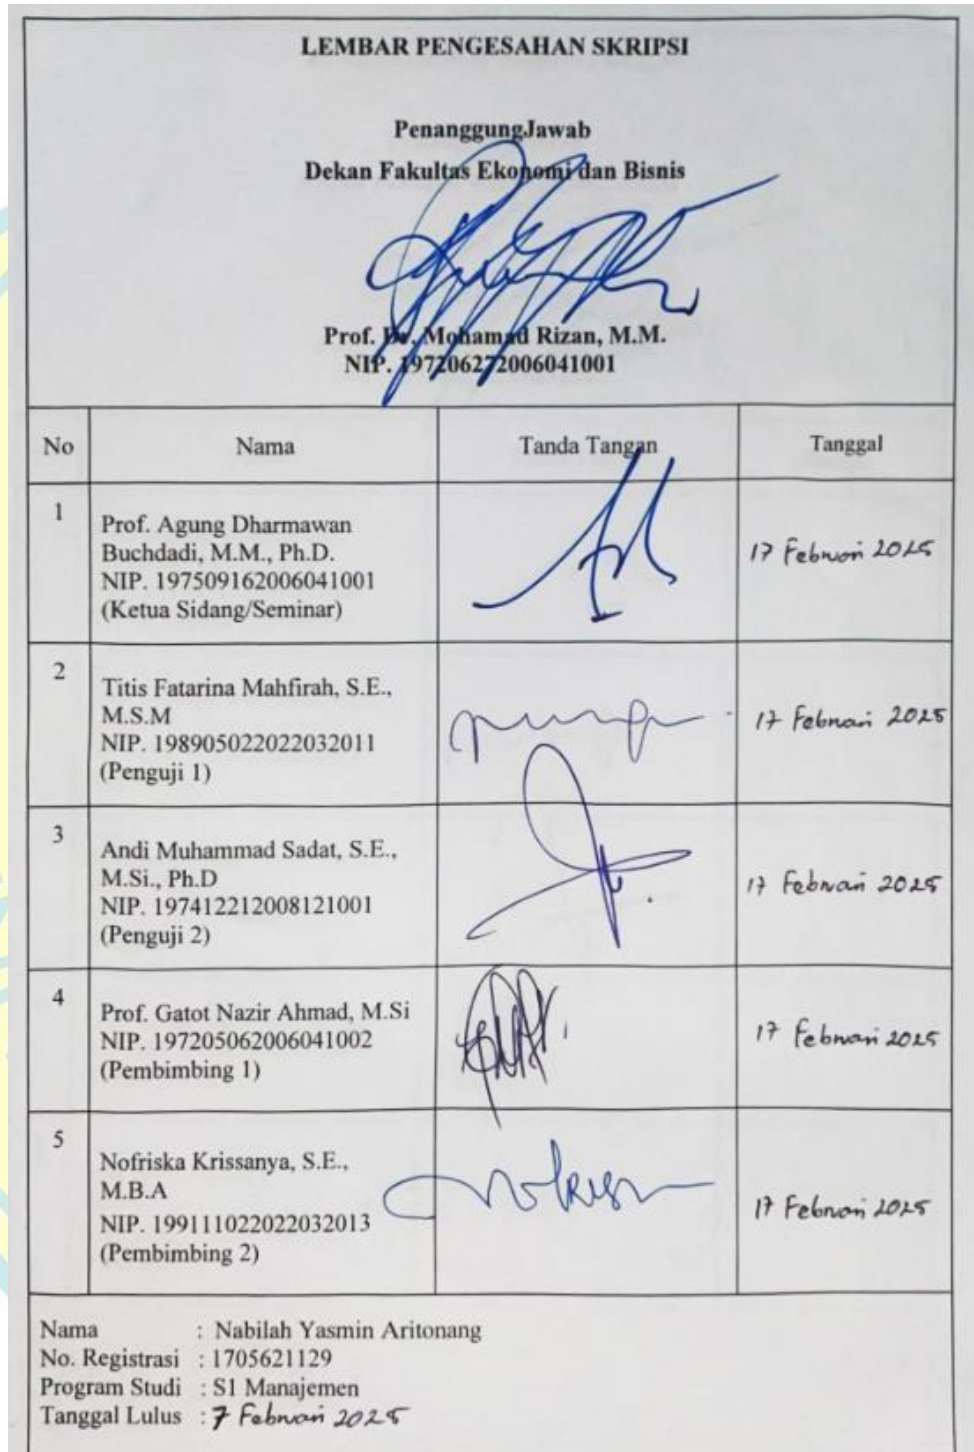 LEMBAR PENGESAHAN SKRIPSI
PenanggungJawab
Dekan Fakultas Ekonomi dan Bisnis
Prof. Dr. Mohamad Rizan, M.M.
NIP. 197206272006041001
No Nama Tanda Tangan Tanggal
1 Prof. Agung Dharmawan
Buchdadi, M.M., Ph.D.
NIP. 197509162006041001
(Ketua Sidang/Seminar)
17 Februari 2025
2 Titis Fatarina Mahfirah, S.E.,
M.S.M
NIP. 198905022022032011
(Penguji 1)
17 Februari 2025
3 Andi Muhammad Sadat, S.E.,
M.Si., Ph.D
NIP. 197412212008121001
(Penguji 2)
17 Februari 2025
4 Prof. Gatot Nazir Ahmad, M.Si
NIP. 197205062006041002
(Pembimbing 1)
17 Februari 2025
5 Nofriska Krissanya, S.E.,
M.B.A
NIP. 199111022022032013
(Pembimbing 2)
17 Februari 2025
Nama : Nabilah Yasmin Aritonang
No. Registrasi : 1705621129
Program Studi : S1 Manajemen
Tanggal Lulus : 7 Februari 2025